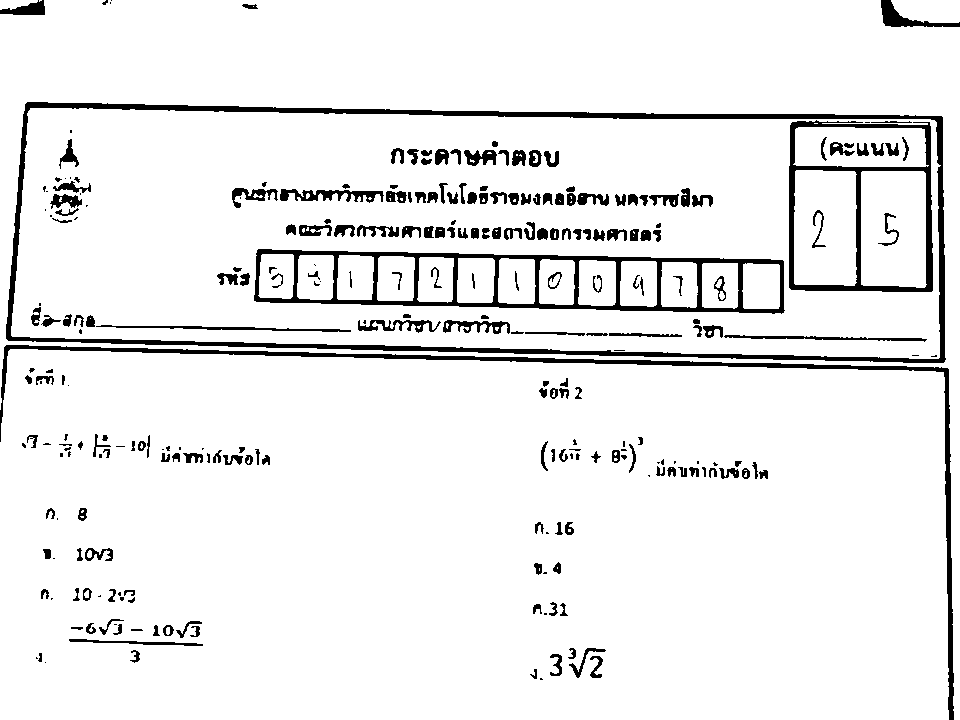 กระดาษคำตอบ
(คะแนน)
ศูนย์กลางมหาวิทยาลัยเทคโนโลยีราชมงคลอีสาน นครราชสีมา
คณะวิศวกรรมศาสตร์และสถาปัตยกรรมศาสตร์
2 5
รหัส 5 8 1 7 2 1 1 0 0 9 7 8
ชื่อ-สกุล แผนกวิชา/สาขาวิชา วิชา
ข้อที่ 1.
มีค่าเท่ากับข้อใด
ก. 8
ข. 10√3
ค. 10 - 2√3
ง. (-6√3 - 10√3)/3
ข้อที่ 2
มีค่าเท่ากับข้อใด
ก. 16
ข. 4
ค.31
ง. 3∛2